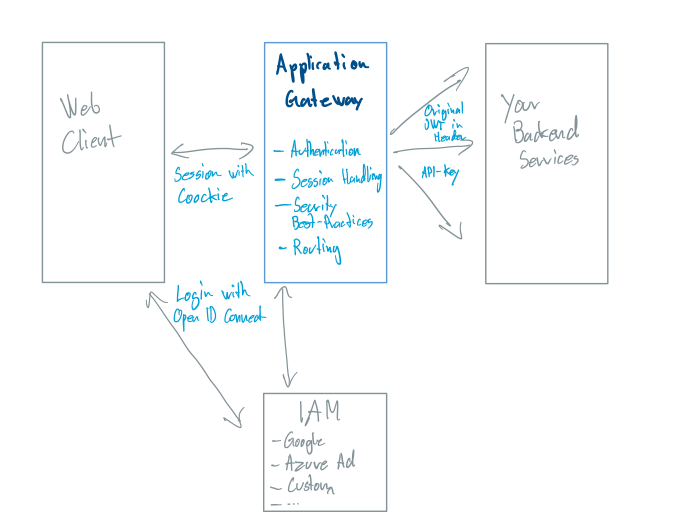 Web
Client
Session with
Coockie
Application
Gateway
- Authentication
- Session Handling
- Security
Best-Practices
- Routing
Original
JWT in
Header
API-Key
Your
Backend
Services
Login with
Open ID Connect
IAM
- Google
- Azure Ad
- Custom
- ...